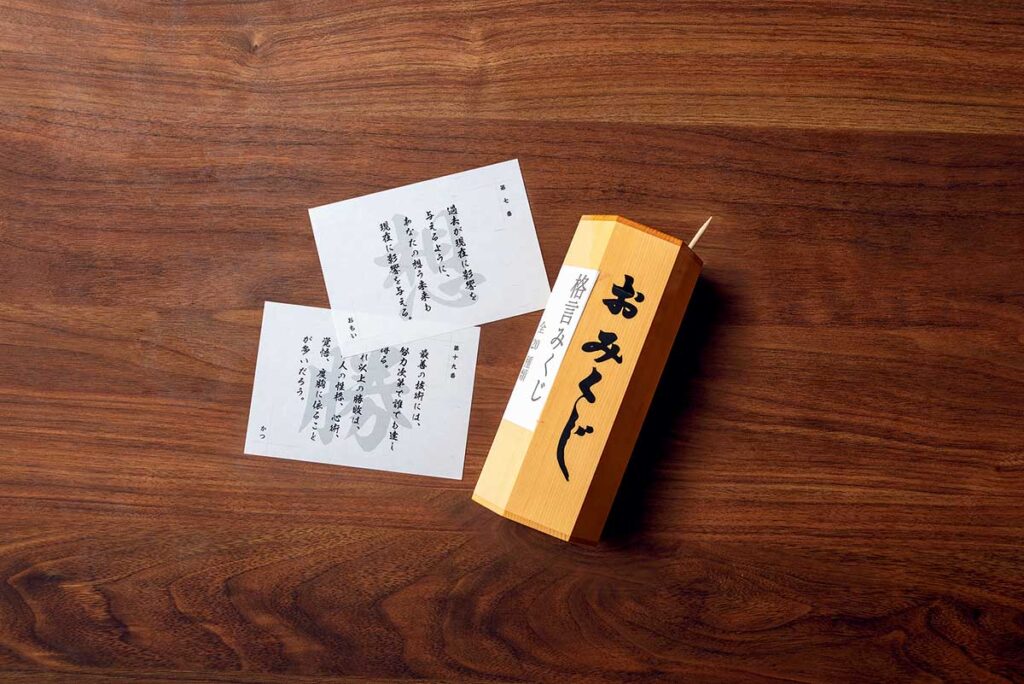 第七番
想
過去が現在に影響を
与えるように、
あなたの想う未来も
現在に影響を与える。
おもい
第十九番
勝
最善の技術には、
努力次第で誰でも達し
得る。
れ以上の勝敗は、
人の性格、心術、
覚悟、度胸に依ること
が多いだろう。
かつ
おみくじ
格言みくじ
全20種類